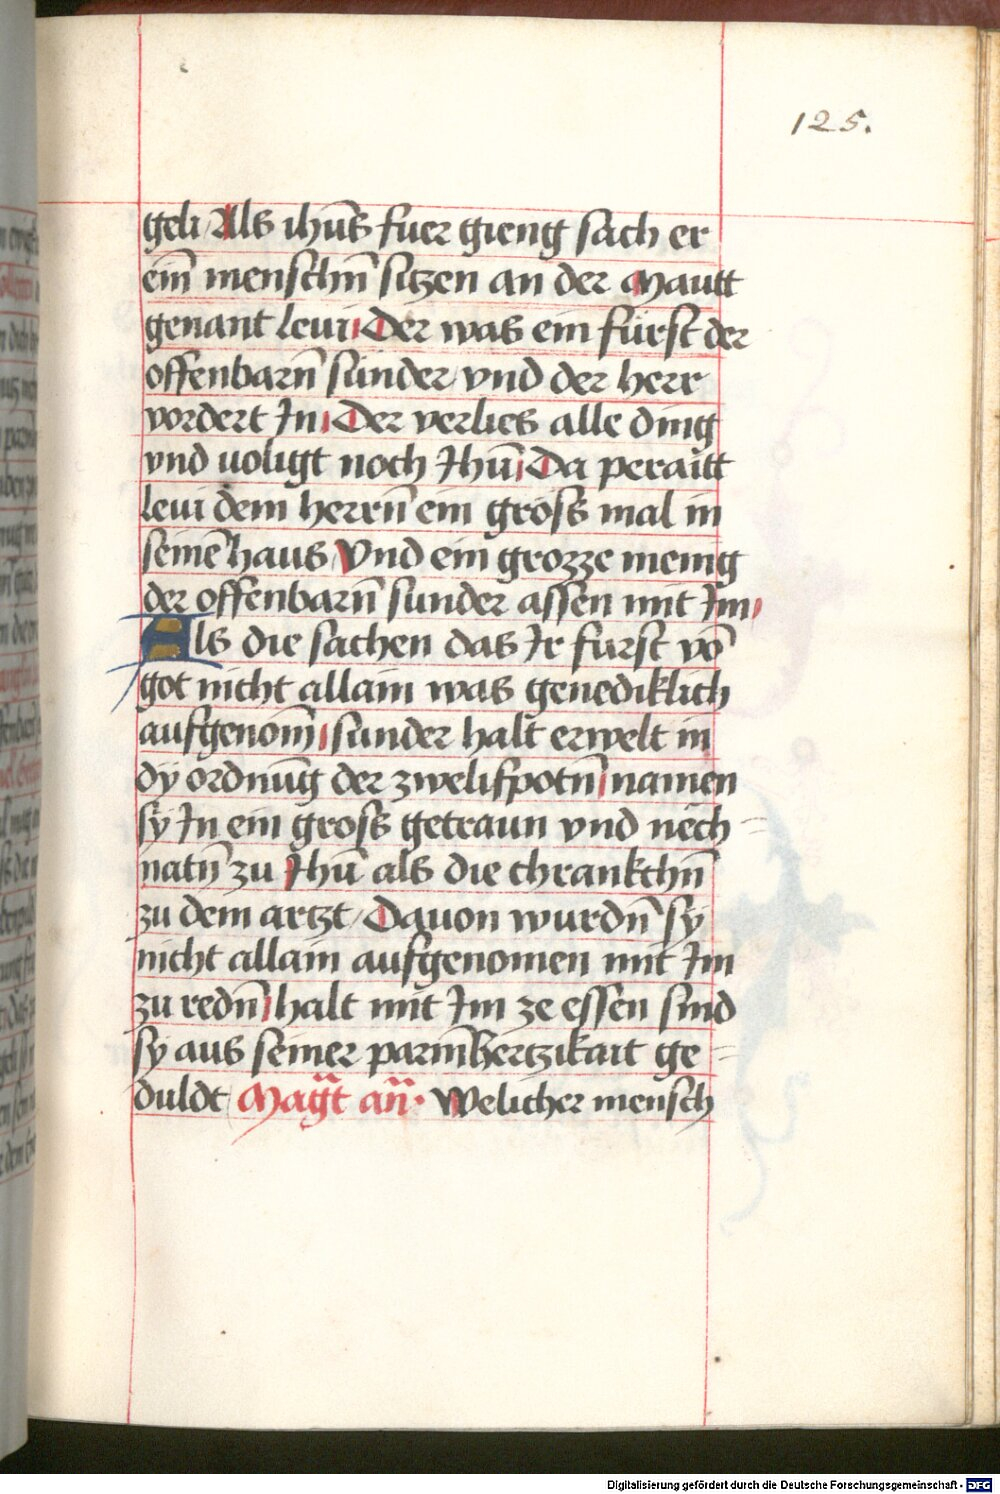 125.
geli Als ihūs fuer gieng sach er
ein̄ menschn̄ sitzen an der Mautt
genant Leui Der was ein fürst der
offenbarn̄ sünder vnd der herr
vordert In Der verlies alle ding
vnd uoligt noch Ihū Da peraitt
Leui dem herrn̄ ein gross mal in
seinē haus Vnd ein grozze menig
der offenbarn̄ sunder assen mit Im
Als die sachen das Ir furst vō
got nicht allain was genediklich
aufgenom̄ sunder halt erwelt in
dÿ ordnūg der zwelifpotn̄ namen
sÿ In ein gross getraun vnd nech=
natn̄ zu Ihū als die chrankchn̄
zu dem artzt Dauon wurdn̄ sÿ
nicht allain aufgenomen mit Im
zu redn̄ halt mit Im ze essen sind
sÿ aus seiner parm̄hertzikait ge=
duldt Mag̈t an̈ · Welicher mensch
Digitalisierung gefördert durch die Deutsche Forschungsgemeinschaft - DFG